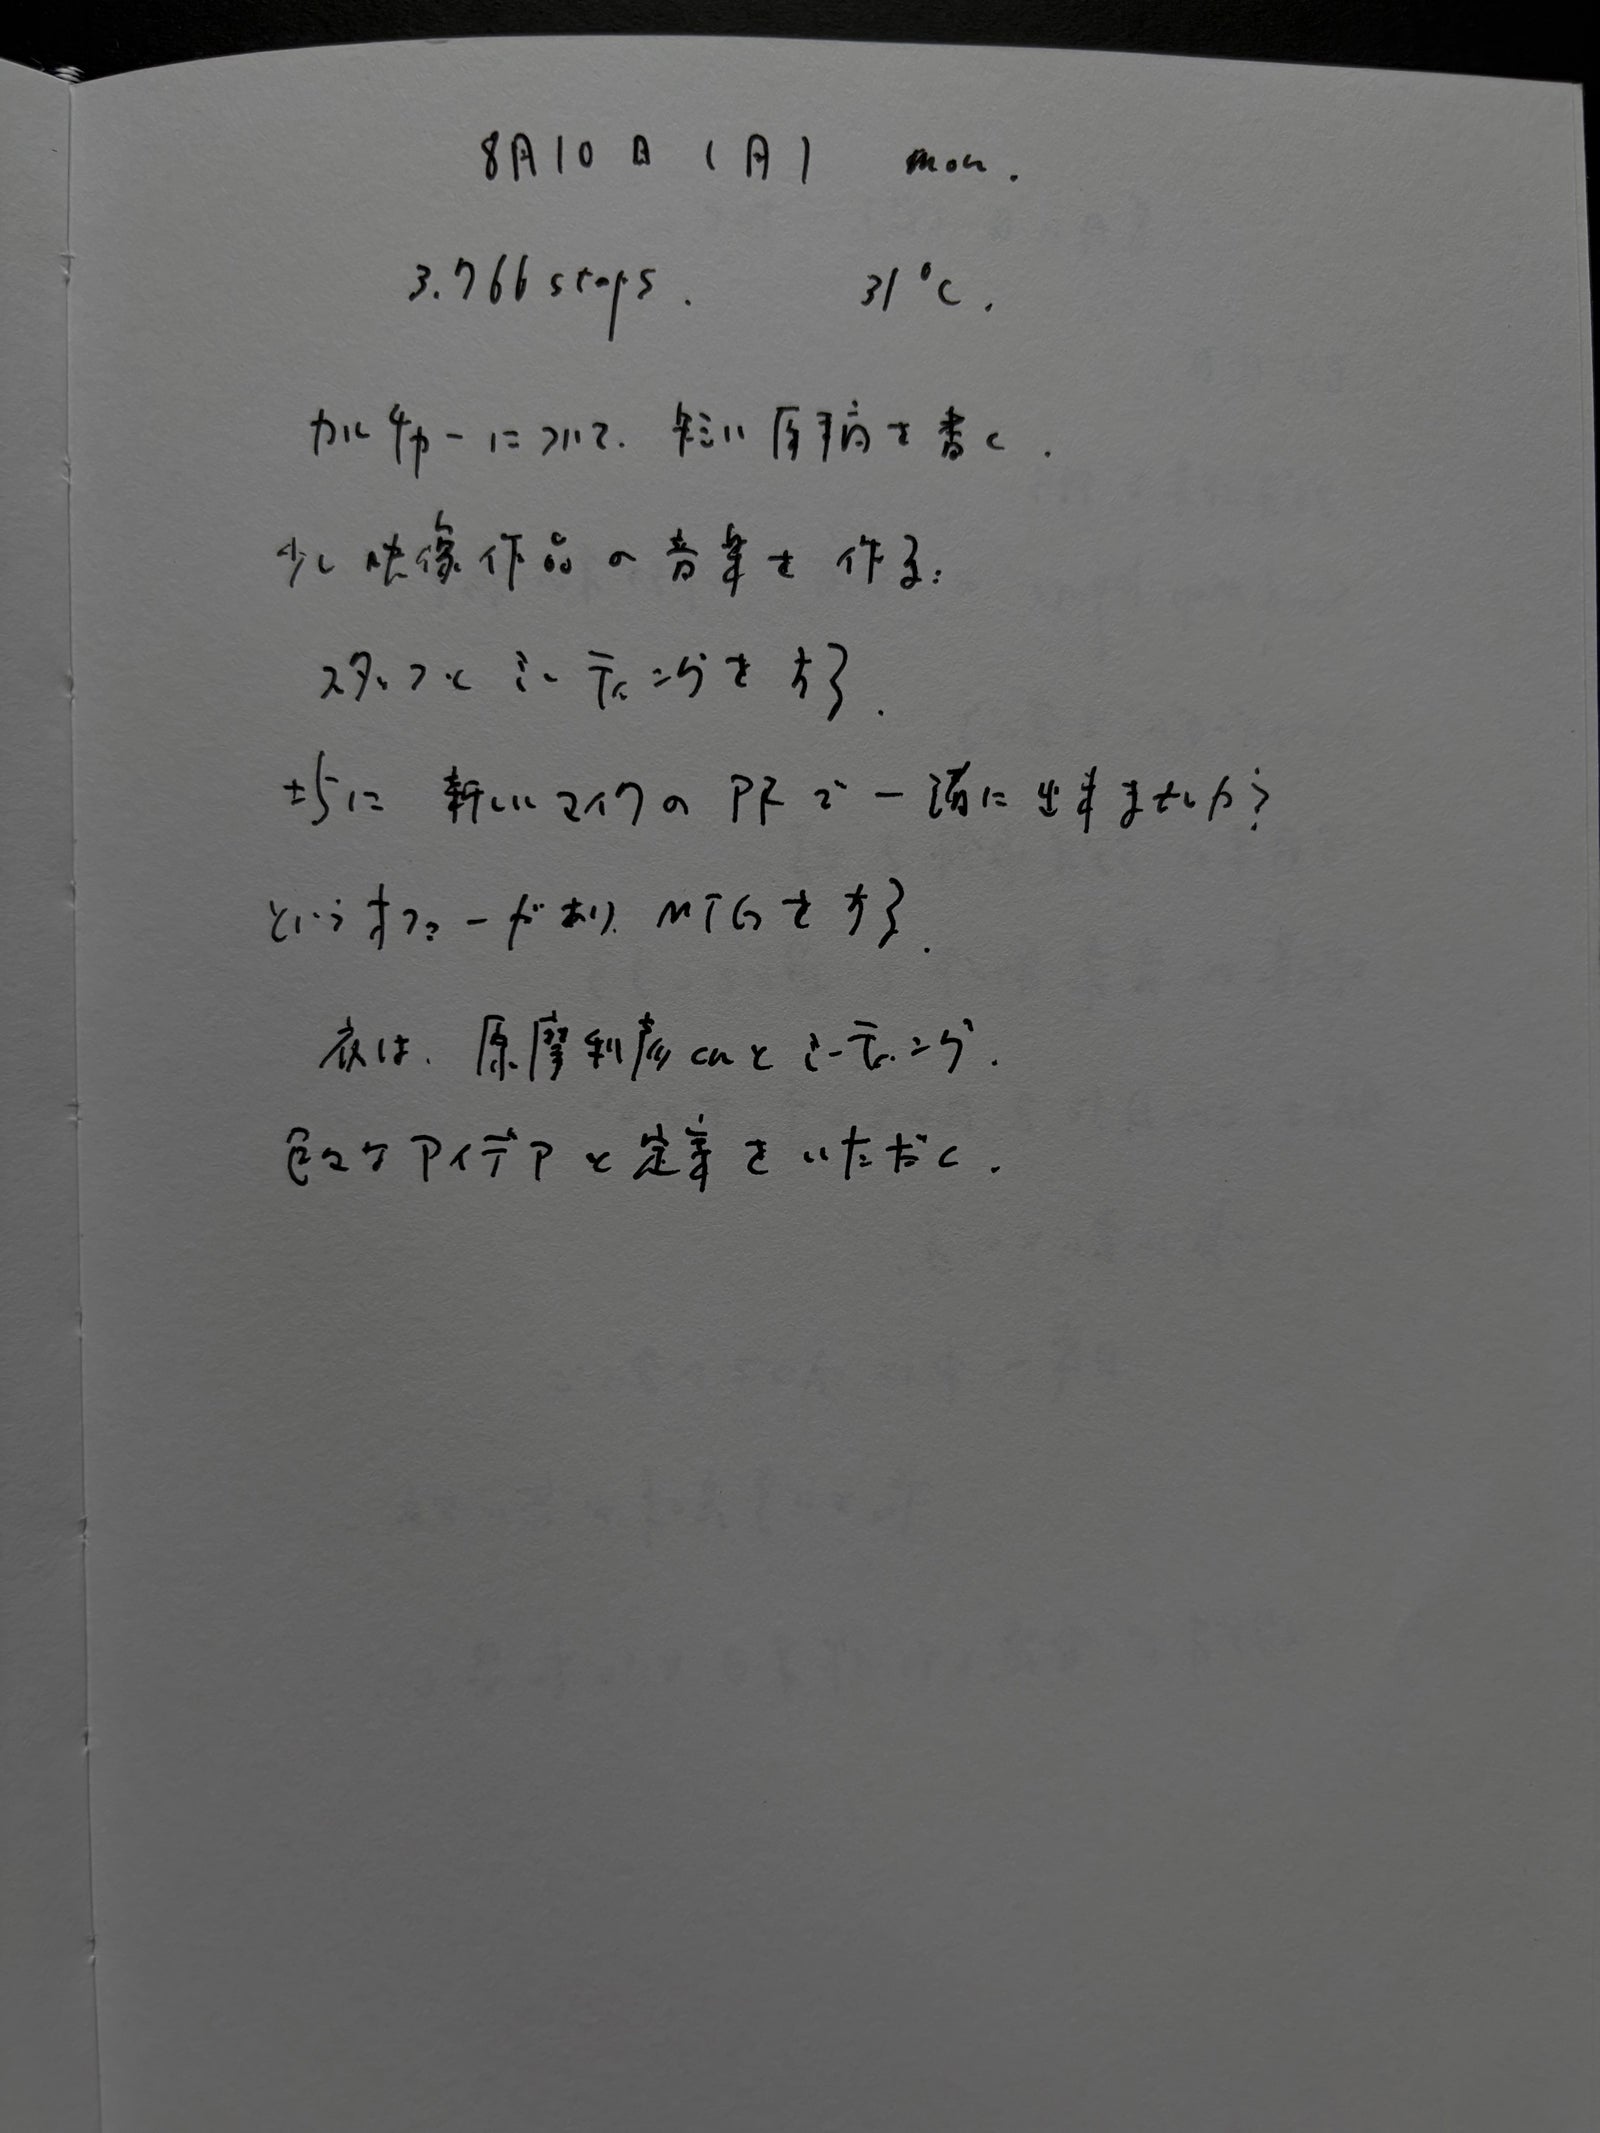 8月10日（月） mon.
3.766 steps. 31℃.
カルチャーについて. 短い原稿を書く.
少し映像作品の音楽を作る.
スタッフとミーティングをする.
さらに新しいマイクのPRで一緒に出来ませんか?
というオファーがあり. MTGをする.
夜は. 原摩利彦さんとミーティング.
色々なアイデアと定案をいただく.